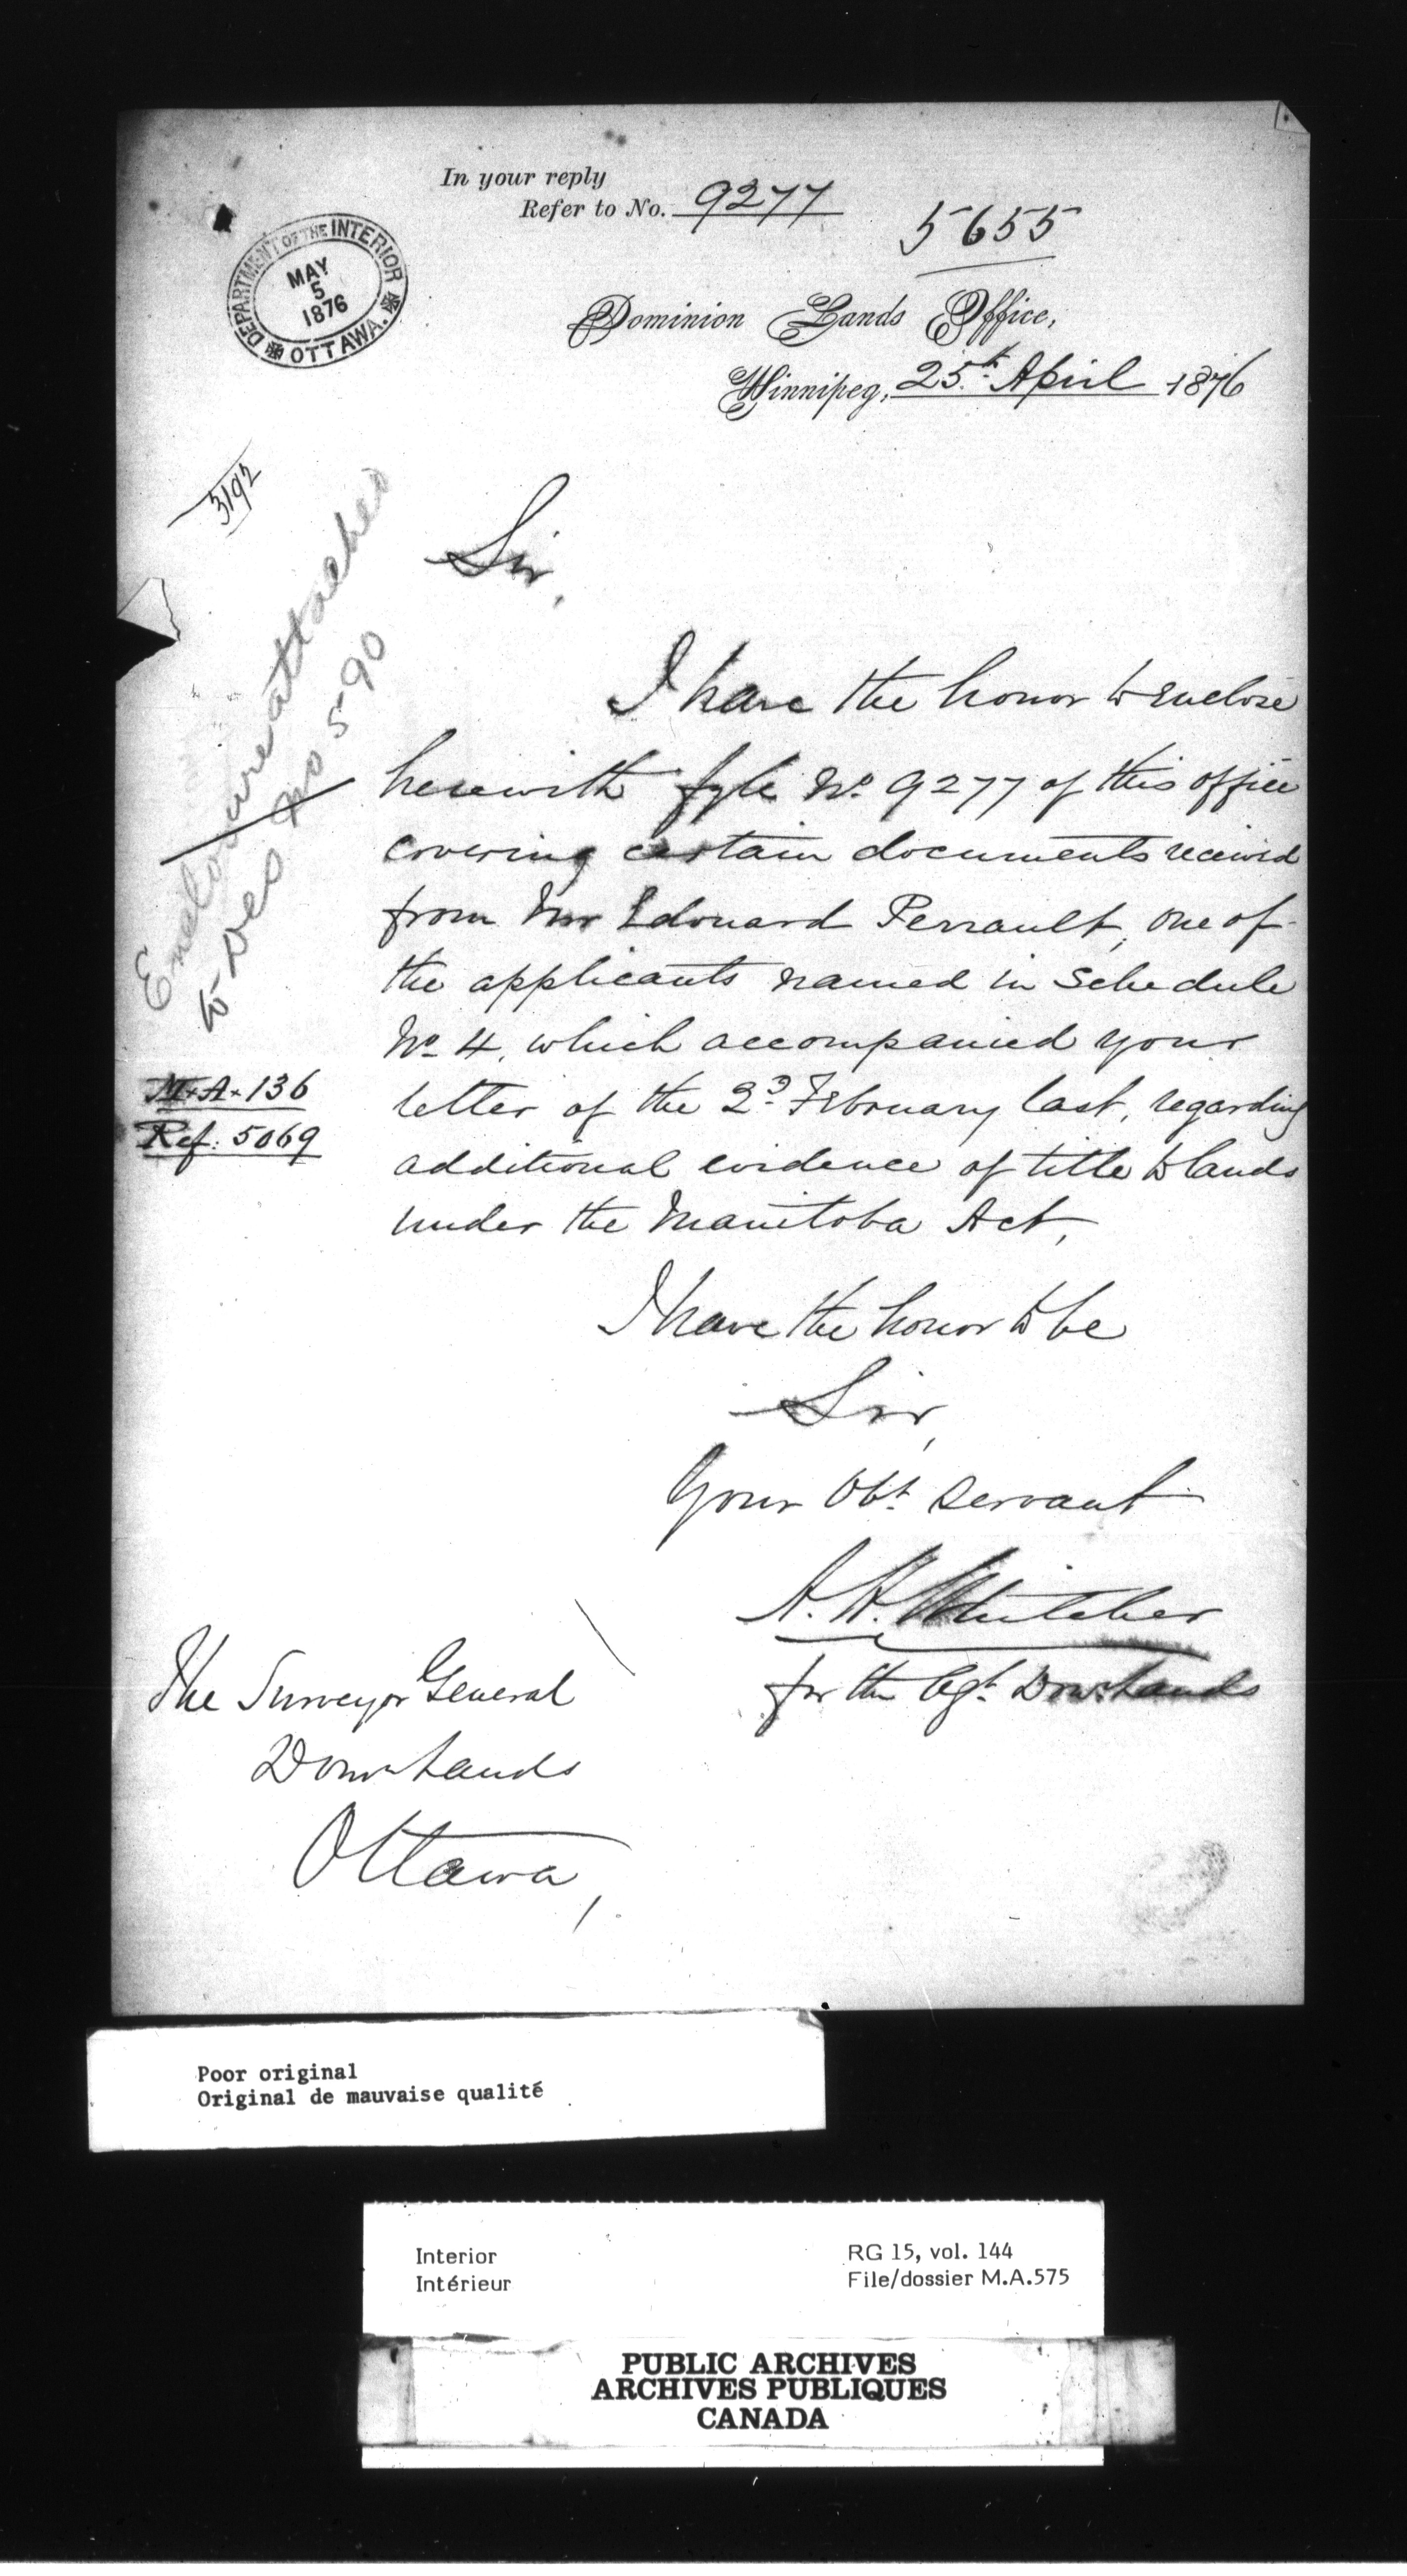 In your reply
Refer to No. 9277
5655
DEPARTMENT OF THE INTERIOR
MAY
5
1876
OTTAWA.
Dominion Lands Office,
Winnipeg, 25th April 1876
3192
Enclosure attached
to Des No 590
Sir,
I have the honor to enclose
herewith fyle No. 9277 of this office
covering certain documents received
from Mr Edouard Perrault, one of
the applicants named in Schedule
No. 4, which accompanied your
letter of the 23d February last, regarding
additional evidence of title to lands
under the Manitoba Act,
M.A. 136
Ref: 5069
I have the honor to be
Sir,
Your Obt. Servant
A. H. Whitcher
for the Agt. Domn Lands
The Surveyor General
Domn Lands
Ottawa,
Poor original
Original de mauvaise qualité
Interior
Intérieur
RG 15, vol. 144
File/dossier M.A.575
PUBLIC ARCHIVES
ARCHIVES PUBLIQUES
CANADA